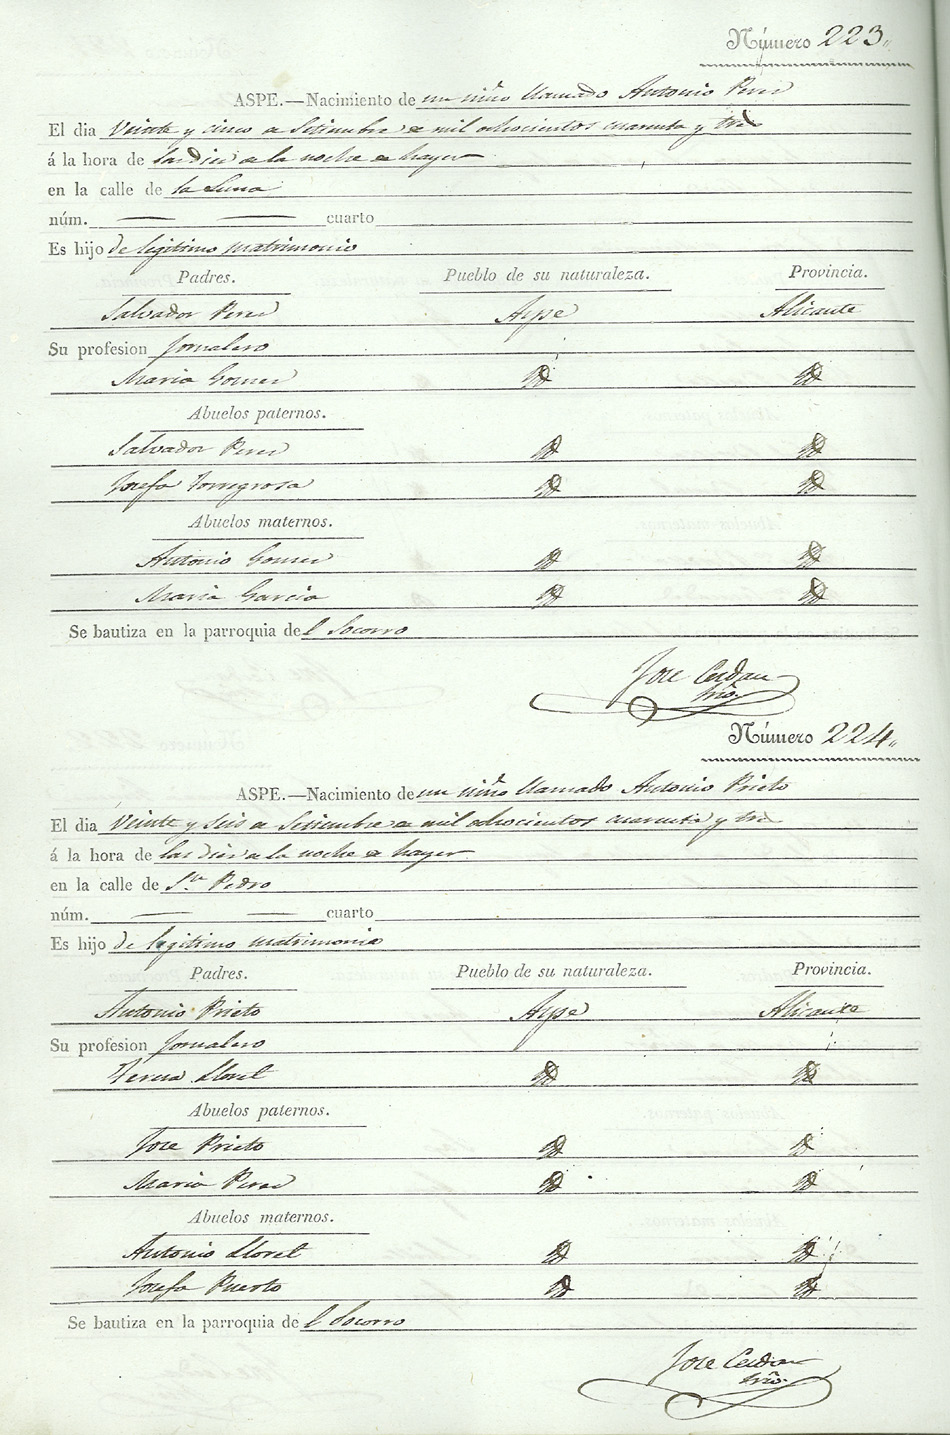 Número 223.
ASPE.—Nacimiento de un niño llamado Antonio Perez
El dia Veinte y cinco de Setiembre de mil ochocientos cuarenta y tres
á la hora de las diez de la noche de hayer
en la calle de la Luna
núm. cuarto
Es hijo de legitimo matrimonio
Padres. Pueblo de su naturaleza. Provincia.
Salvador Perez Aspe Alicante
Su profesion Jornalero
Maria Gomez Yd Yd
Abuelos paternos.
Salvador Perez Yd Yd
Josefa Torregrosa Yd Yd
Abuelos maternos.
Antonio Gomez Yd Yd
Maria Garcia Yd Yd
Se bautiza en la parroquia del Socorro
Jose Cerdan
Srio.
Número 224.
ASPE.—Nacimiento de un niño llamado Antonio Prieto
El dia Veinte y seis de Setiembre de mil ochocientos cuarenta y tres
á la hora de las diez de la noche de hayer
en la calle de Sn Pedro
núm. cuarto
Es hijo de legitimo matrimonio
Padres. Pueblo de su naturaleza. Provincia.
Antonio Prieto Aspe Alicante
Su profesion Jornalero
Teresa Lloret Yd Yd
Abuelos paternos.
Jose Prieto Yd Yd
Maria Perez Yd Yd
Abuelos maternos.
Antonio Lloret Yd Yd
Josefa Puerto Yd Yd
Se bautiza en la parroquia del Socorro
Jose Cerdan
Srio.